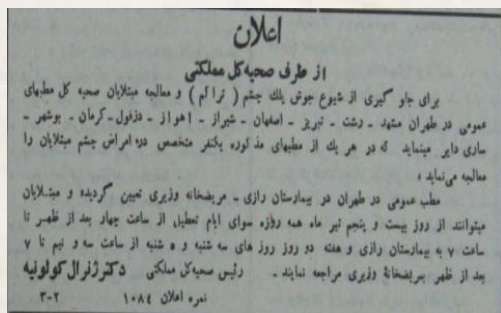 اعلان
از طرف صحیه کل مملکتی
برای جلو گیری از شیوع جوش پلک چشم ( تراکم ) و معالجه مبتلایان صحیه کل مطبهای
عمومی در طهران مشهد ـ رشت ـ تبریز ـ اصفهان ـ شیراز ـ اهواز ـ دزفول ـ کرمان ـ بوشهر ـ
ساری دایر مینماید که در هر یك از مطبهای مذکوره یکنفر متخصص در امراض چشم مبتلایان را
معالجه می‌نماید ،
مطب عمومی در طهران در بیمارستان رازی ـ مریضخانه وزیری تعیین گردیده و مبتلایان
میتوانند از روز بیست و پنجم تیر ماه همه روزه سوای ایام تعطیل از ساعت چهار بعد از ظهر تا
ساعت ۷ به بیمارستان رازی و هفته دو روز روز های سه شنبه و ۵ شنبه از ساعت سه و نیم تا ۷
بعد از ظهر بمریضخانهٔ وزیری مراجعه نمایند . رئیس صحیه کل مملکتی دکتر ژنرال کولونیه
نمره اعلان ۱۰۸٤ ۳-۲